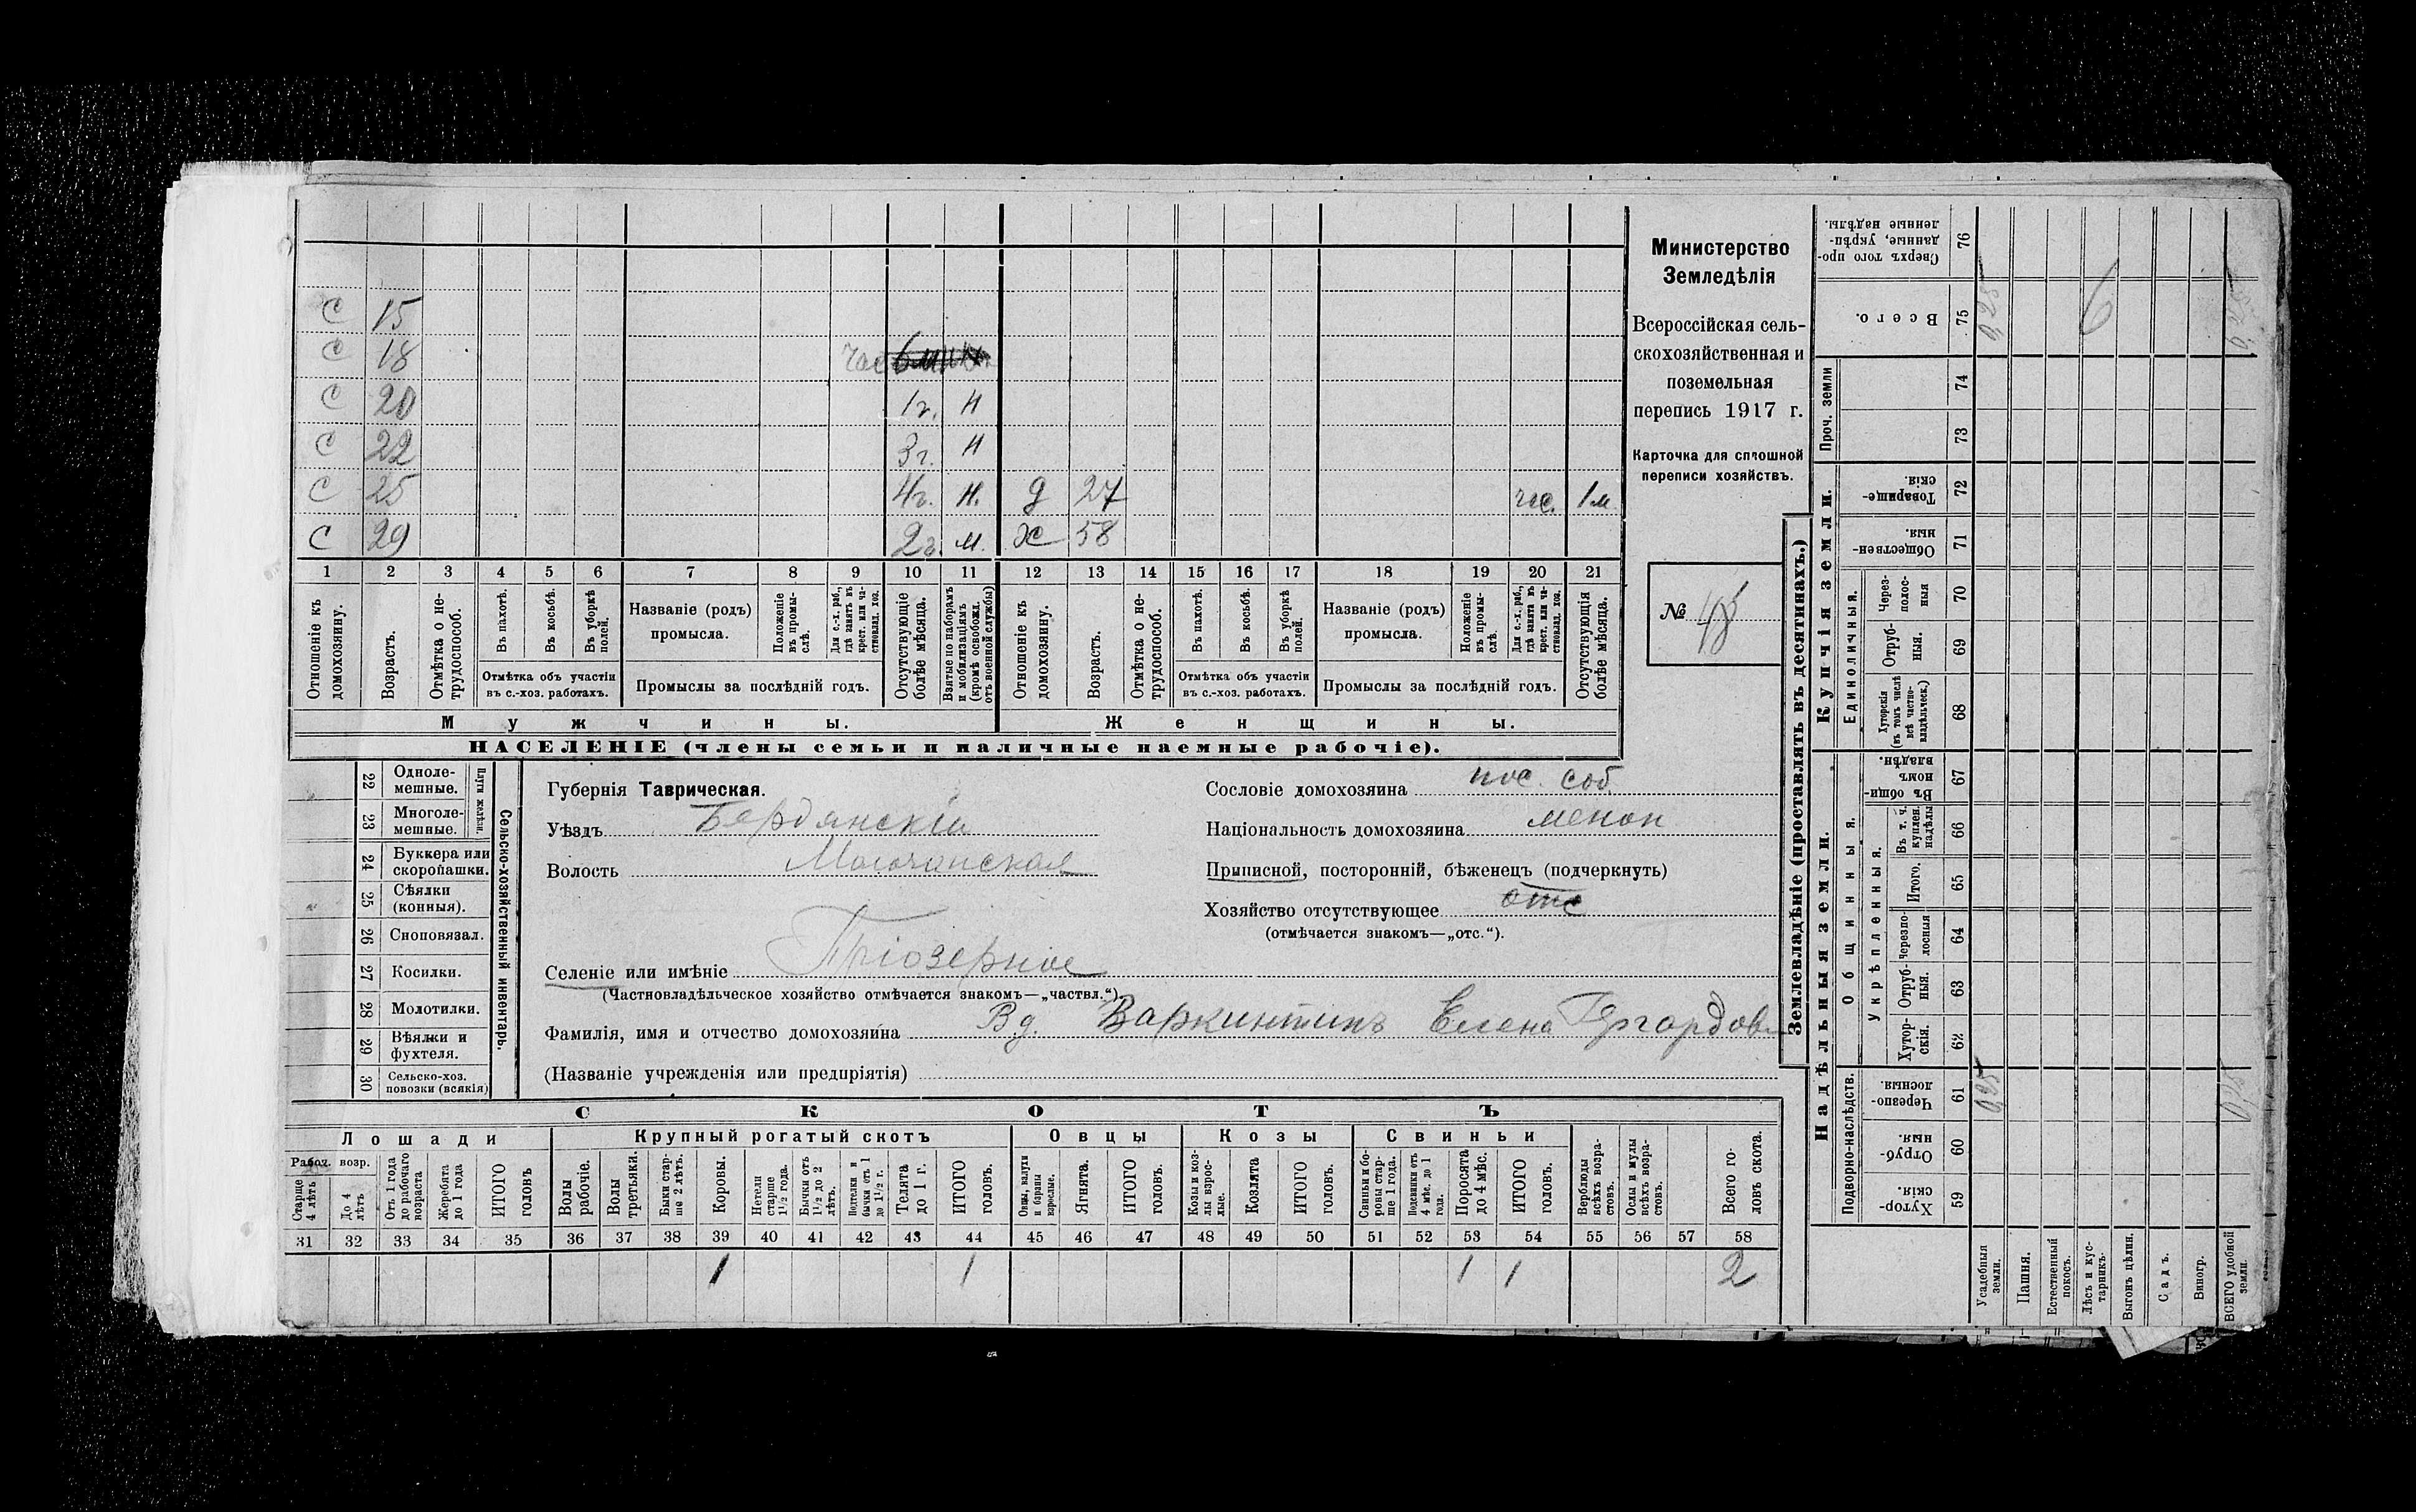 С 15
С 18
С 20 1г. Н
С 22 3г. Н
С 25 4г. Н. Д 27 час. 1м.
С 29 2г. М. Ж 58
1 2 3 4 5 6 7 8 9 10 11 12 13 14 15 16 17 18 19 20 21
Отношеніе къ домохозяину.
Возрастъ.
Отмѣтка о нетрудоспособ.
Въ пахотѣ.
Въ косьбѣ.
Въ уборкѣ полей.
Отмѣтка объ участіи въ с.-хоз. работахъ.
Названіе (родъ) промысла.
Положеніе въ промыслѣ.
Для с.-х. раб., гдѣ занятъ въ крест. или частновлад. хоз.
Промыслы за послѣдній годъ.
Отсутствующіе болѣе мѣсяца.
Взятые по наборамъ и мобилизаціямъ (кромѣ освобожд. отъ военной службы)
Отношеніе къ домохозяину.
Возрастъ.
Отмѣтка о нетрудоспособ.
Въ пахотѣ.
Въ косьбѣ.
Въ уборкѣ полей.
Отмѣтка объ участіи въ с.-хоз. работахъ.
Названіе (родъ) промысла.
Положеніе въ промыслѣ.
Для с.-х. раб., гдѣ занята въ крест. или частновлад. хоз.
Промыслы за послѣдній годъ.
Отсутствующія болѣе мѣсяца.
Мужчины. Женщины.
НАСЕЛЕНІЕ (члены семьи и наличные наемные рабочіе).
Министерство
Земледѣлія
Всероссійская сель-
скохозяйственная и
поземельная
перепись 1917 г.
Карточка для сплошной
переписи хозяйствъ.
№ 48
22 Однолемешные.
23 Многолемешные.
Плуги желѣзн.
24 Буккера или скоропашки.
25 Сѣялки (конныя).
26 Сноповязал.
27 Косилки.
28 Молотилки.
29 Вѣялки и фухтеля.
30 Сельско-хоз. повозки (всякія)
Сельско-хозяйственный инвентарь.
Губернія Таврическая.
Уѣздъ Бердянскій
Волость Молочанская
Селеніе или имѣніе Пріозерное
(Частновладѣльческое хозяйство отмѣчается знакомъ—„частвл.“)
Фамилія, имя и отчество домохозяина Вд. Варкинтинъ Елена Гергардов
(Названіе учрежденія или предпріятія)
Сословіе домохозяина пос. соб.
Національность домохозяина менон
Приписной, посторонній, бѣженецъ (подчеркнуть)
Хозяйство отсутствующее отс
(отмѣчается знакомъ—„отс.“).
СКОТЪ
Лошади Крупный рогатый скотъ Овцы Козы Свиньи
Рабоч. возр.
Старше 4 лѣтъ
До 4 лѣтъ
Отъ 1 года до рабочаго возраста
Жеребята до 1 года
ИТОГО головъ
Волы рабочіе.
Волы третьяки.
Быки старше 2 лѣтъ.
Коровы.
Нетели старше 1½ года.
Бычки отъ 1½ до 2 лѣтъ.
Подтелки и бычки отъ 1 до 1½ г.
Телята до 1 г.
ИТОГО головъ.
Овцы, валухи и бараны взрослые.
Ягнята.
ИТОГО головъ.
Козы и козлы взрослые.
Козлята
ИТОГО головъ.
Свиньи и боровы старше 1 года.
Подсвинки отъ 4 мѣс. до 1 года.
Поросята до 4 мѣс.
ИТОГО головъ.
Верблюды всѣхъ возрастовъ.
Ослы и мулы всѣхъ возрастовъ.
Всего головъ скота.
31 32 33 34 35 36 37 38 39 40 41 42 43 44 45 46 47 48 49 50 51 52 53 54 55 56 57 58
1 1 1 1 2
Землевладѣніе (проставлять въ десятинахъ.)
Купчія земли.
Надѣльныя земли.
Сверхъ того проданные, укрѣпленные надѣлы. 76
Всего. 75 0,25 6
Проч. земли 74 73
Товарищескія 72
Общественныя. 71
Единоличныя.
Черезполосныя 70
Отрубныя. 69
Хуторскія (въ томъ числѣ всѣ частновладѣльческ.) 68
Общинныя.
Въ общинномъ владѣн. 67
Укрѣпленныя.
Въ т. ч. куплен. надѣлы 66
Итого. 65
Черезполосныя 64
Отрубныя. 63
Хуторскія. 62
Подворно-наслѣдств.
Черезполосныя. 61 0,25
Отрубныя. 60
Хуторскія. 59
Усадебныя земли.
Пашня.
Естественный покосъ.
Лѣсъ и кустарникъ.
Выгонъ цѣлин.
Садъ.
Виногр.
ВСЕГО удобной земли.